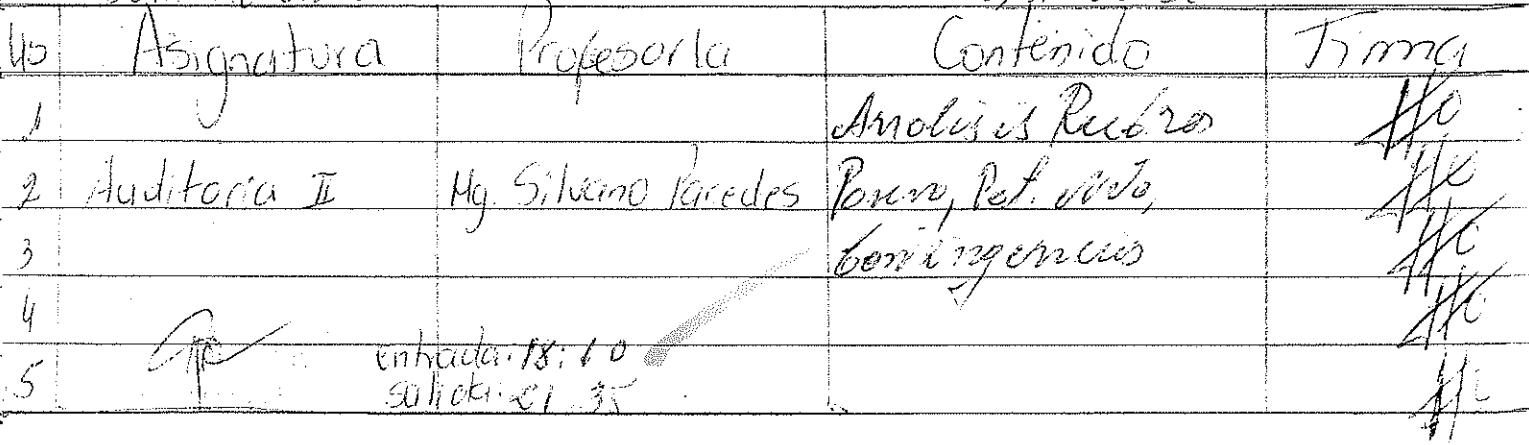 No Asignatura Profesor/a Contenido Firma
1 Analisis Rubros
2 Auditoria II Mg. Silvano Paredes Pasivo, Pat. Neto,
3 Contingencias
4
Entrada: 18:10
5 salida: 21:35